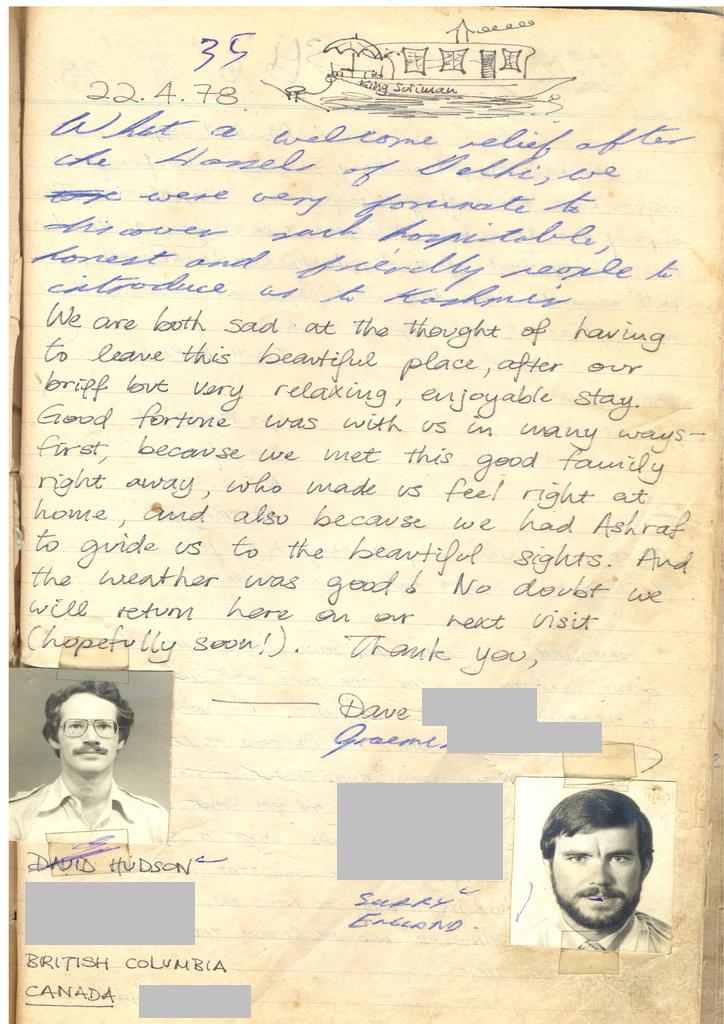 35
King Soliman
22.4.78
What a welcome relief after
the Hassel of Delhi, we
were very forunate to
discover such hospitable,
honest and friendly people to
introduce us to Kashmir
We are both sad at the thought of having
to leave this beautiful place, after our
brief but very relaxing, enjoyable stay.
Good fortune was with us in many ways-
first, because we met this good family
right away, who made us feel right at
home, and also because we had Ashraf
to guide us to the beautiful sights. And
the weather was good! No doubt we
will return here on our next visit
(hopefully soon!). Thank you,
Dave
Graeme
DAVID HUDSON
SURRY
ENGLAND.
BRITISH COLUMBIA
CANADA